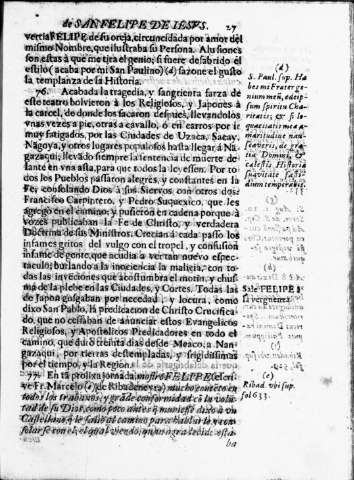 de SAN FELIPE DE IESVS. 27
vertia FELIPE de su oreja, circuncidada por amor del
mismo Nombre, que ilustraba su Persona. Alusiones
son estas à que me tira el genio; si fuere desabrido el
estilo (acaba por mi San Paulino) (d) sazone el gusto
la templanza de la Historia.
76. Acabada la tragedia, y sangrienta farza de
este teatro bolvieron à los Religiosos, y Japones à
la carcel, de donde los sacaron despues, llevandolos
vnas vezes a pie, otras a cavallo, ò en carros por ir
muy fatigados, por las Ciudades de Vzaca, Sacay,
Nãgoya, y otros lugares populosos hasta llegar à Nã-
gazaqui, llevãdo siempre la sentencia de muerte de-
lante en vna asta, para que todos la leyessen. Por to-
dos los Pueblos passaron alegres, y constantes en la
Fe, consolando Dios à sus Siervos con otros dos
Francisco Carpintero, y Pedro Suquexico, que les
agregò en el camino: y pusieron en cadena porque à
vozes publicaban la Fe de Christo, y verdadera
Doctrina de sus Ministros. Crecian à cada passo los
infames gritos del vulgo con el tropel, y confusion
infame de gente, que acudia a ver tan nuevo espec-
taculo; burlando a la inocencia la malicia, con to-
das las invenciones que acostumbra el motin, y chus-
ma de la plebe en las Ciudades, y Cortes. Todas las
de Japon gasgaban por necedad, y locura, como
dixo San Pablo, la predicacion de Christo Crucifica-
do, que no cessaban de anunciar estos Evangelicos
Religiosos, y Apostolicos Predicadores en todo el
camino, que durò treinta dias desde Meaco, a Nan-
gazaqui, por tierras destempladas, y frigidissimas
por el tiempo, y la Region.
77. En tã prolixa jornada, mostrò FELIPE (escri-
ve Fr. Marcelo (e) de Ribadeneyra) mucho contẽto en
todos los trabajos, y grãde conformidad cõ la volũ-
tad de su Dios, como poco antes
Castellano, q̃ le saliò al camino para hablarle, y con-
solarse con el, el qual viendo, quan
ha
(d)
S. Paul. sup. Ha
bes mi Frater ge-
nium meũ, ad ip-
sum spiritu Cha-
ritatis, & si lo-
quacitatis mea a-
maritudine nau-
seaveris, de gra-
tia Domini, &
cælestis Historiæ
suavitate fasti-
dium temperabis.
Sale FELIPE à
la verguenza
(e)
Ribad. vbi sup.
fol 633.